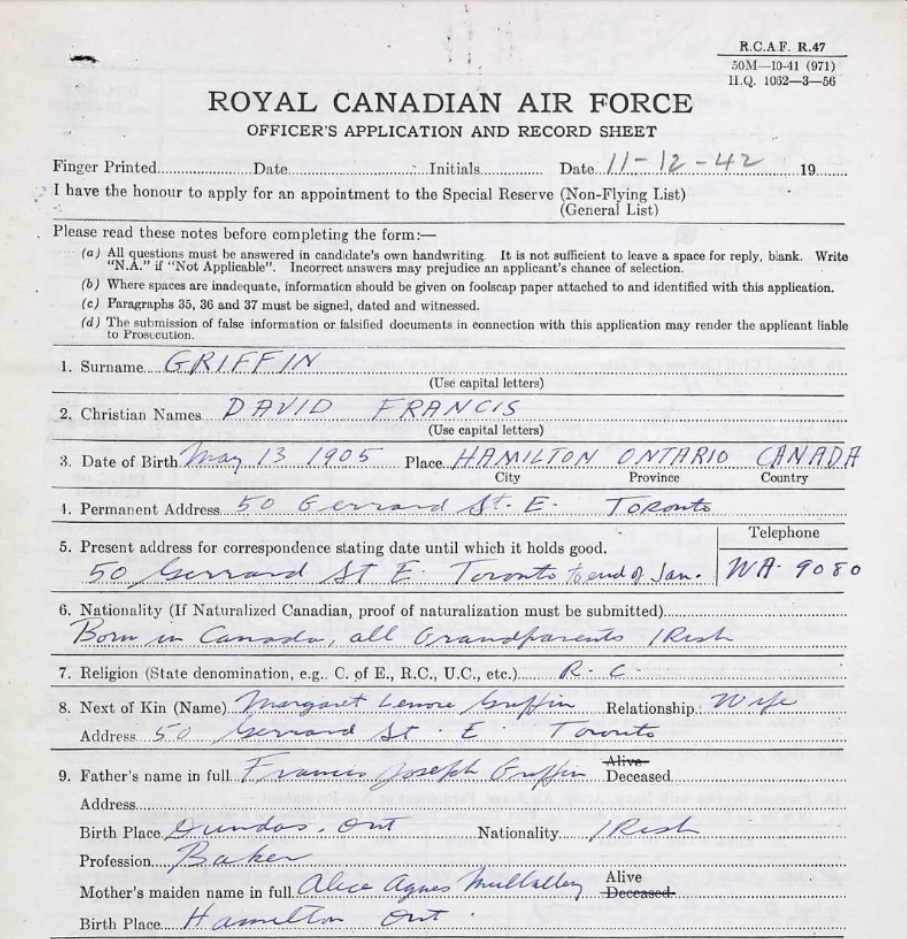 R.C.A.F. R.47
50M—10-41 (971)
H.Q. 1062—3—56
ROYAL CANADIAN AIR FORCE
OFFICER'S APPLICATION AND RECORD SHEET
Finger Printed Date Initials Date 11-12-42 19
I have the honour to apply for an appointment to the Special Reserve (Non-Flying List)
(General List)
Please read these notes before completing the form:—
(a) All questions must be answered in candidate's own handwriting. It is not sufficient to leave a space for reply, blank. Write
"N.A." if "Not Applicable". Incorrect answers may prejudice an applicant's chance of selection.
(b) Where spaces are inadequate, information should be given on foolscap paper attached to and identified with this application.
(c) Paragraphs 35, 36 and 37 must be signed, dated and witnessed.
(d) The submission of false information or falsified documents in connection with this application may render the applicant liable
to Prosecution.
1. Surname GRIFFIN
(Use capital letters)
2. Christian Names DAVID FRANCIS
(Use capital letters)
3. Date of Birth May 13 1905 Place HAMILTON ONTARIO CANADA
City Province Country
4. Permanent Address 50 Gerrard St. E. Toronto
5. Present address for correspondence stating date until which it holds good. Telephone
50 Gerrard St E. Toronto to end of Jan. WA. 9080
6. Nationality (If Naturalized Canadian, proof of naturalization must be submitted)
Born in Canada, all Grandparents IRish
7. Religion (State denomination, e.g. C. of E., R.C., U.C., etc.) R. C.
8. Next of Kin (Name) Margaret Lenore Griffin Relationship Wife
Address 50 Gerrard St. E Toronto
9. Father's name in full Francis Joseph Griffin Alive
Deceased
Address
Birth Place Dundas, Ont Nationality IRish
Profession Baker
Mother's maiden name in full Alice Agnes Mullalley Alive
Deceased
Birth Place Hamilton Ont.